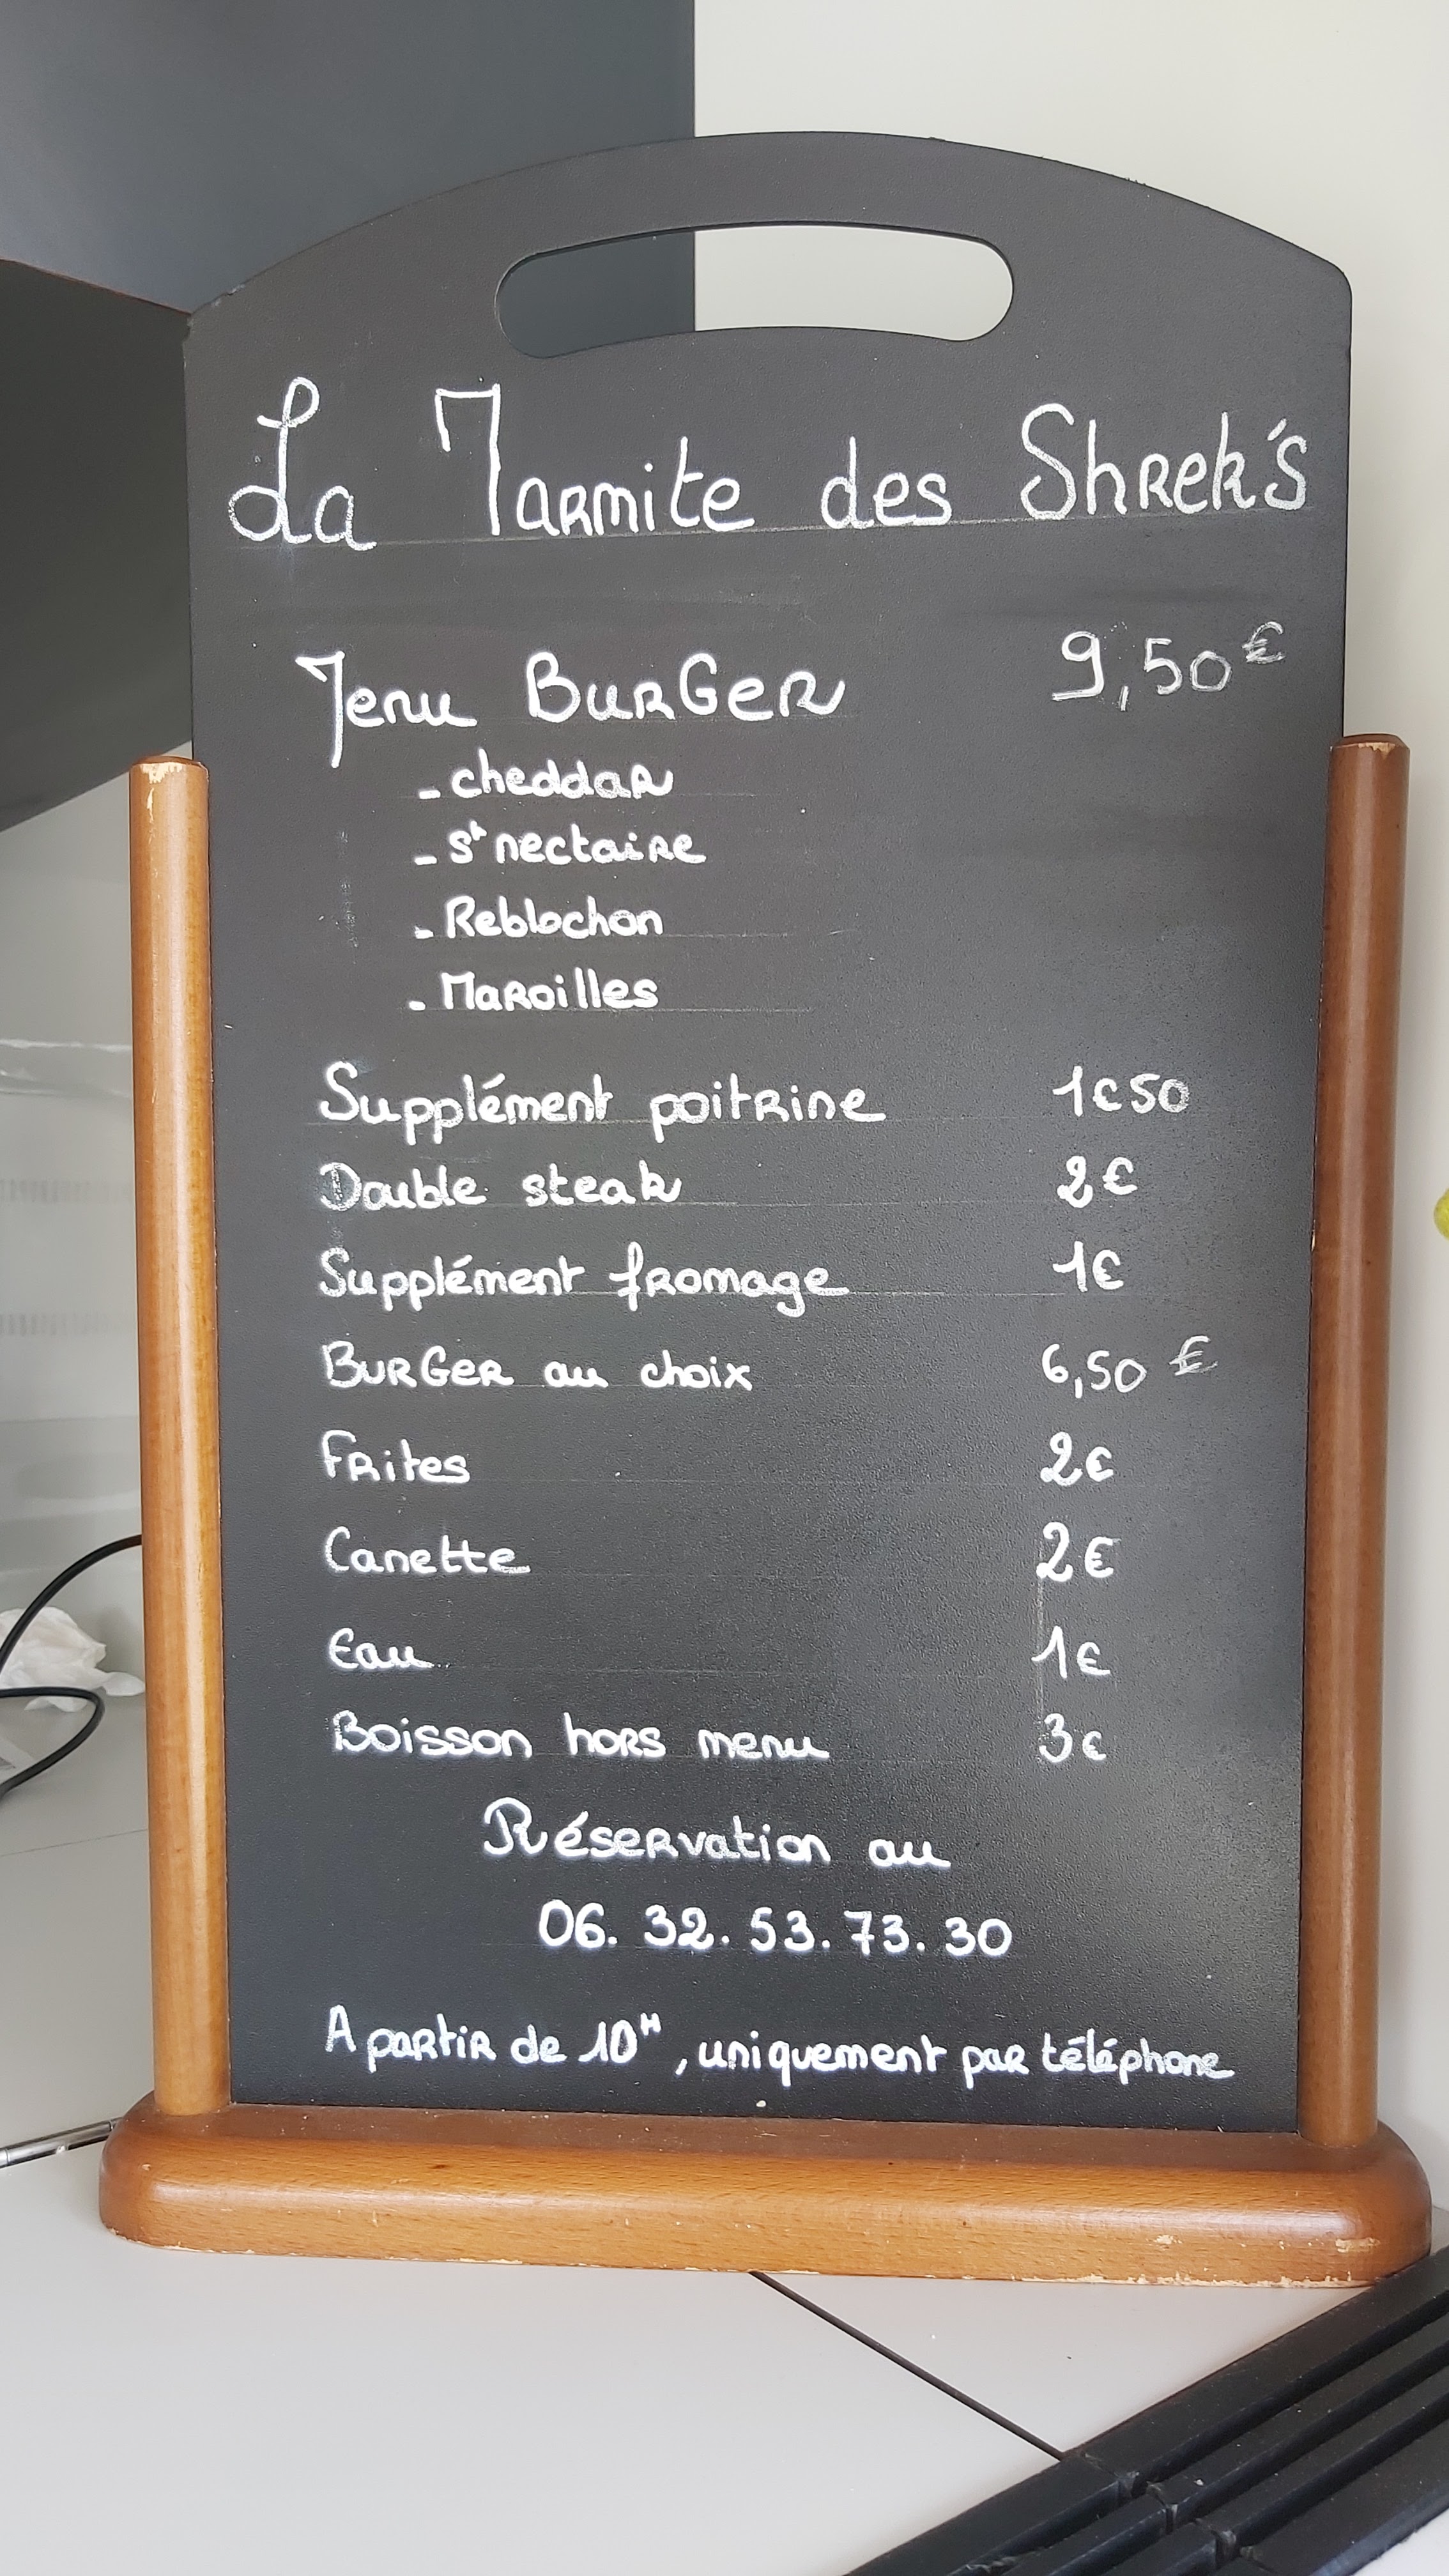 La Marmite des Shrek's
Menu BURGER 9,50€
- cheddar
- St nectaire
- Reblochon
- Maroilles
Supplément poitrine 1€50
Double steak 2€
Supplément fromage 1€
BURGER au choix 6,50 €
Frites 2€
Canette 2€
Eau 1€
Boisson hors menu 3€
Réservation au
06. 32. 53. 73. 30
A partir de 10H, uniquement par téléphone